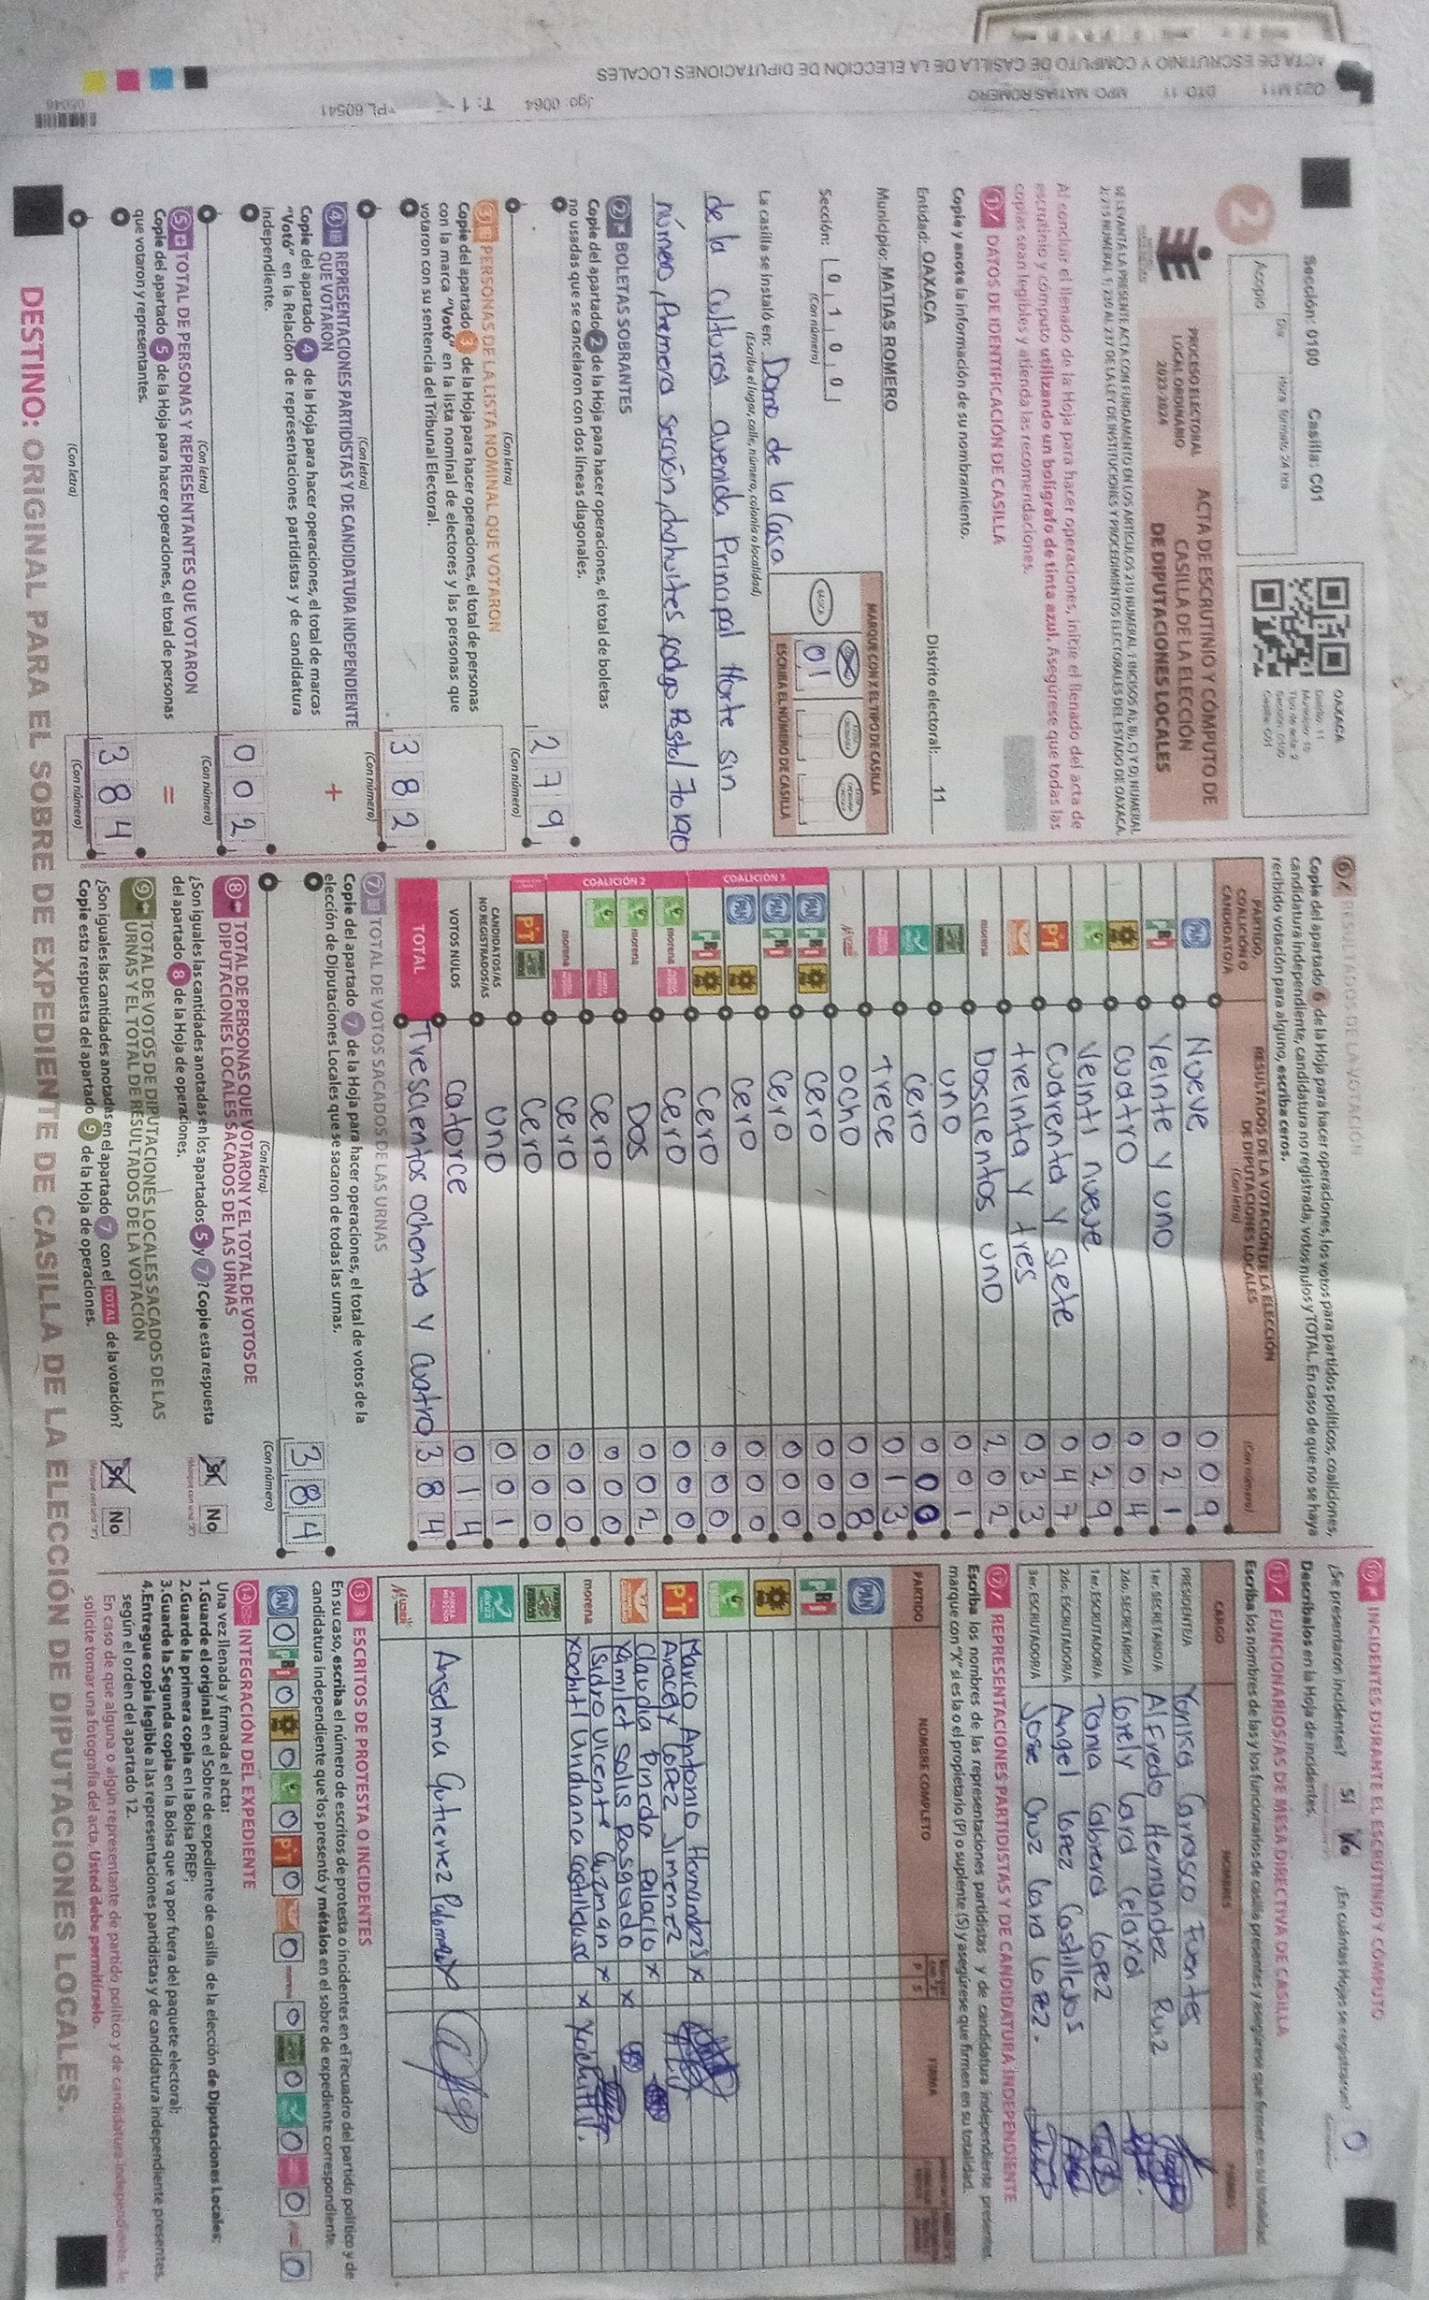 Sección: 0100 Casilla: C01
2
Acopio
Día
Hora formato 24 hrs
OAXACA
Distrito: 11
Tipo de acta: 2
Sección: 0100
Casilla: C01
PROCESO ELECTORAL
LOCAL ORDINARIO
2023-2024
ACTA DE ESCRUTINIO Y CÓMPUTO DE
CASILLA DE LA ELECCIÓN
DE DIPUTACIONES LOCALES
SE LEVANTA LA PRESENTE ACTA CON FUNDAMENTO EN LOS ARTÍCULOS 210 NUMERAL 1 INCISOS A), B), C) Y D) NUMERAL
2; 215 NUMERAL 1; 230 AL 237 DE LA LEY DE INSTITUCIONES Y PROCEDIMIENTOS ELECTORALES DEL ESTADO DE OAXACA.
Al concluir el llenado de la Hoja para hacer operaciones, inicie el llenado del acta de
escrutinio y cómputo utilizando un bolígrafo de tinta azul. Asegúrese que todas las
copias sean legibles y atienda las recomendaciones.
1 DATOS DE IDENTIFICACIÓN DE CASILLA
Copie y anote la información de su nombramiento.
Entidad: OAXACA Distrito electoral: 11
Municipio: MATIAS ROMERO
Sección: 0 1 0 0
(Con número)
MARQUE CON X EL TIPO DE CASILLA
BÁSICA
ESCRIBA EL NÚMERO DE CASILLA
01
La casilla se instaló en: Domo de la Casa
(Escriba el lugar, calle, número, colonia o localidad)
de la Cultura avenida Principal Norte sin
número, Premera sección,
Postal 70190
2 BOLETAS SOBRANTES
Copie del apartado 2 de la Hoja para hacer operaciones, el total de boletas
no usadas que se cancelaron con dos líneas diagonales.
279
(Con letra) (Con número)
3 PERSONAS DE LA LISTA NOMINAL QUE VOTARON
Copie del apartado 3 de la Hoja para hacer operaciones, el total de personas
con la marca "Votó" en la lista nominal de electores y las personas que
votaron con su sentencia del Tribunal Electoral.
382
(Con letra) (Con número)
4 REPRESENTACIONES PARTIDISTAS Y DE CANDIDATURA INDEPENDIENTE
QUE VOTARON
Copie del apartado 4 de la Hoja para hacer operaciones, el total de marcas
"Votó" en la Relación de representaciones partidistas y de candidatura
independiente.
+
002
(Con letra) (Con número)
5 TOTAL DE PERSONAS Y REPRESENTANTES QUE VOTARON
Copie del apartado 5 de la Hoja para hacer operaciones, el total de personas
que votaron y representantes.
=
384
(Con letra) (Con número)
6 RESULTADOS DE LA VOTACIÓN
Copie del apartado 6 de la Hoja para hacer operaciones, los votos para partidos políticos, coaliciones,
candidatura independiente, candidatura no registrada, votos nulos y TOTAL. En caso de que no se haya
recibido votación para alguno, escriba ceros.
PARTIDO,
COALICIÓN O
CANDIDATO/A
RESULTADOS DE LA VOTACIÓN DE LA ELECCIÓN
DE DIPUTACIONES LOCALES
(Con letra)
(Con número)
PAN Nueve 009
PRI Veinte y uno 021
cuatro 004
Veinti nueve 029
PT cuarenta y siete 047
treinta y tres 033
morena Doscientos uno 202
uno 001
cero 000
trece 013
ocho 008
COALICIÓN 1
PAN PRI cero 000
PAN PRI cero 000
PAN cero 000
PRI cero 000
COALICIÓN 2
morena cero 000
morena Dos 002
cero 000
morena cero 000
PT cero 000
CANDIDATOS/AS
NO REGISTRADOS/AS uno 001
VOTOS NULOS catorce 014
TOTAL Trescientos ochenta y cuatro 384
7 TOTAL DE VOTOS SACADOS DE LAS URNAS
Copie del apartado 7 de la Hoja para hacer operaciones, el total de votos de la
elección de Diputaciones Locales que se sacaron de todas las urnas.
384
(Con letra) (Con número)
8 TOTAL DE PERSONAS QUE VOTARON Y EL TOTAL DE VOTOS DE
DIPUTACIONES LOCALES SACADOS DE LAS URNAS
¿Son iguales las cantidades anotadas en los apartados 5 y 7? Copie esta respuesta
del apartado 8 de la Hoja de operaciones.
Sí No
9 TOTAL DE VOTOS DE DIPUTACIONES LOCALES SACADOS DE LAS
URNAS Y EL TOTAL DE RESULTADOS DE LA VOTACIÓN
¿Son iguales las cantidades anotadas en el apartado 7 con el TOTAL de la votación?
Copie esta respuesta del apartado 9 de la Hoja de operaciones.
Sí No
10 INCIDENTES DURANTE EL ESCRUTINIO Y CÓMPUTO
¿Se presentaron incidentes? SÍ No ¿En cuántas Hojas se registraron? 0
Descríbalos en la Hoja de incidentes.
11 FUNCIONARIOS/AS DE MESA DIRECTIVA DE CASILLA
Escriba los nombres de las y los funcionarios de casilla presentes y asegúrese que firmen en su totalidad.
CARGO NOMBRES FIRMAS
PRESIDENTE/A Carrasco Fuentes
1er. SECRETARIO/A Alfredo Hernandez Ruiz
2do. SECRETARIO/A Lorely Lara Celaya
1er. ESCRUTADOR/A Tania Cabrera Lopez
2do. ESCRUTADOR/A Angel Lopez Castillejos
3er. ESCRUTADOR/A Jose Cruz Lara Lopez.
12 REPRESENTACIONES PARTIDISTAS Y DE CANDIDATURA INDEPENDIENTE
Escriba los nombres de las representaciones partidistas y de candidatura independiente presentes,
marque con "X" si es la o el propietario (P) o suplente (S) y asegúrese que firmen en su totalidad.
PARTIDO NOMBRE COMPLETO P S FIRMA
PAN
PRI
Marco Antonio Hernandez S x
PT Aracely Lopez Jimenez
Claudia Pineda Palacio x
Yamilet Solis Rasgado x
Isidro Vicente Guzman x
morena Xochitl Undiana x
Anselma Gutierrez Palomex
13 ESCRITOS DE PROTESTA O INCIDENTES
En su caso, escriba el número de escritos de protesta o incidentes en el recuadro del partido político y de
candidatura independiente que los presentó y métalos en el sobre de expediente correspondiente.
PAN 0 PRI 0 0 0 PT 0 0 0 0 0 0 0
14 INTEGRACIÓN DEL EXPEDIENTE
Una vez llenada y firmada el acta:
1.Guarde el original en el Sobre de expediente de casilla de la elección de Diputaciones Locales;
2.Guarde la primera copia en la Bolsa PREP;
3.Guarde la Segunda copia en la Bolsa que va por fuera del paquete electoral;
4.Entregue copia legible a las representaciones partidistas y de candidatura independiente presentes,
según el orden del apartado 12.
En caso de que alguna o algún representante de partido político y de candidatura independiente, le
solicite tomar una fotografía del acta, Usted debe permitírselo.
DESTINO: ORIGINAL PARA EL SOBRE DE EXPEDIENTE DE CASILLA DE LA ELECCIÓN DE DIPUTACIONES LOCALES.
ACTA DE ESCRUTINIO Y CÓMPUTO DE CASILLA DE LA ELECCIÓN DE DIPUTACIONES LOCALES
DTO 11 MPO MATIAS ROMERO
Jgo: 0064 T: 1 PL 60541